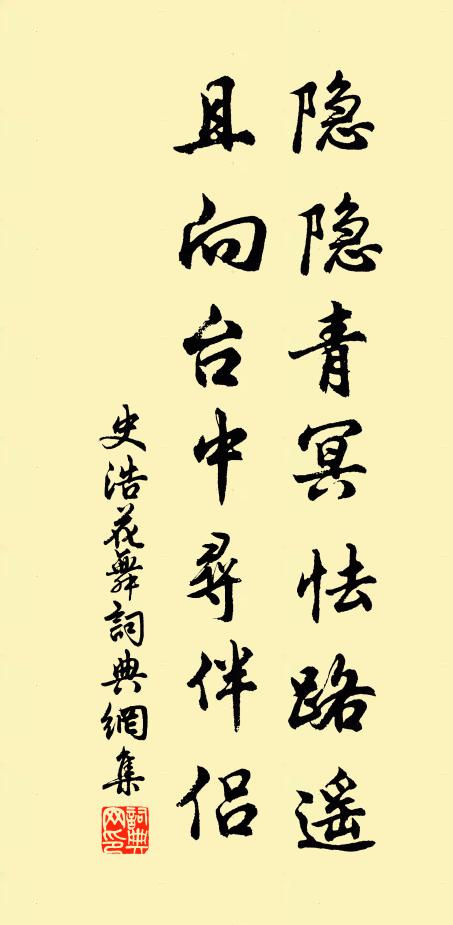 隐隐青冥怯路遥
且向台中寻伴侣
史浩花舞詞典網集
詞典网印